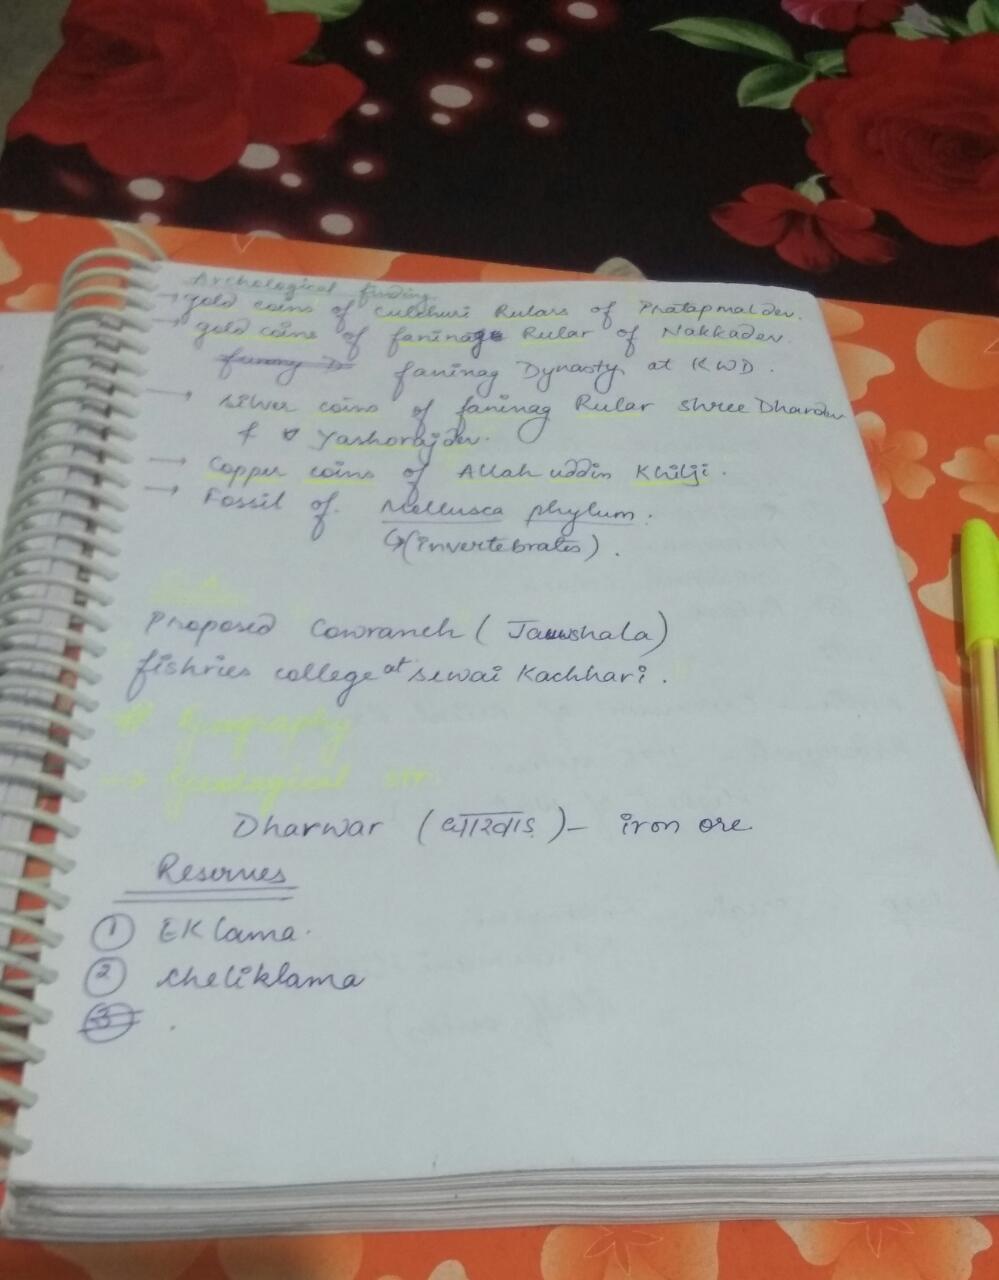 Archological finding.
→ gold coins of culchuri Rulars of Pratapmaldev.
→ gold coins of faninag Rular of Nakkadev.
faninag Dynasty at KWD.
→ silver coins of faninag Rular shree Dhardev
& Yashorajdev.
→ Copper coins of Allah uddin Khilji.
→ Fossil of. Mollusca phylum.
↳(invertebrates).
Proposed Cowranch (Jauwshala)
fishries college at sewai Kachhari.
Geography
→ Geological
Dharwar (धारवाड़) - iron ore.
Reserves
① EKlama.
② cheliklama
③